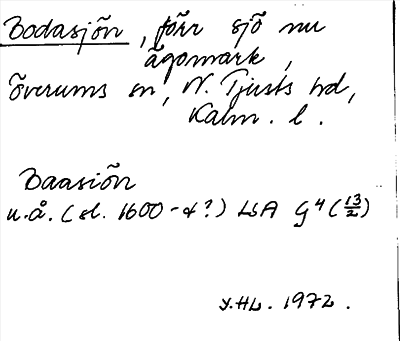 Bodasjön, förr sjö nu
ägomark,
Överums sn, N. Tjusts hd,
Kalm. l.
Baasiön
u.å. (sl. 1600-t?) LSA G4 (13/2)
Y.HL. 1972.